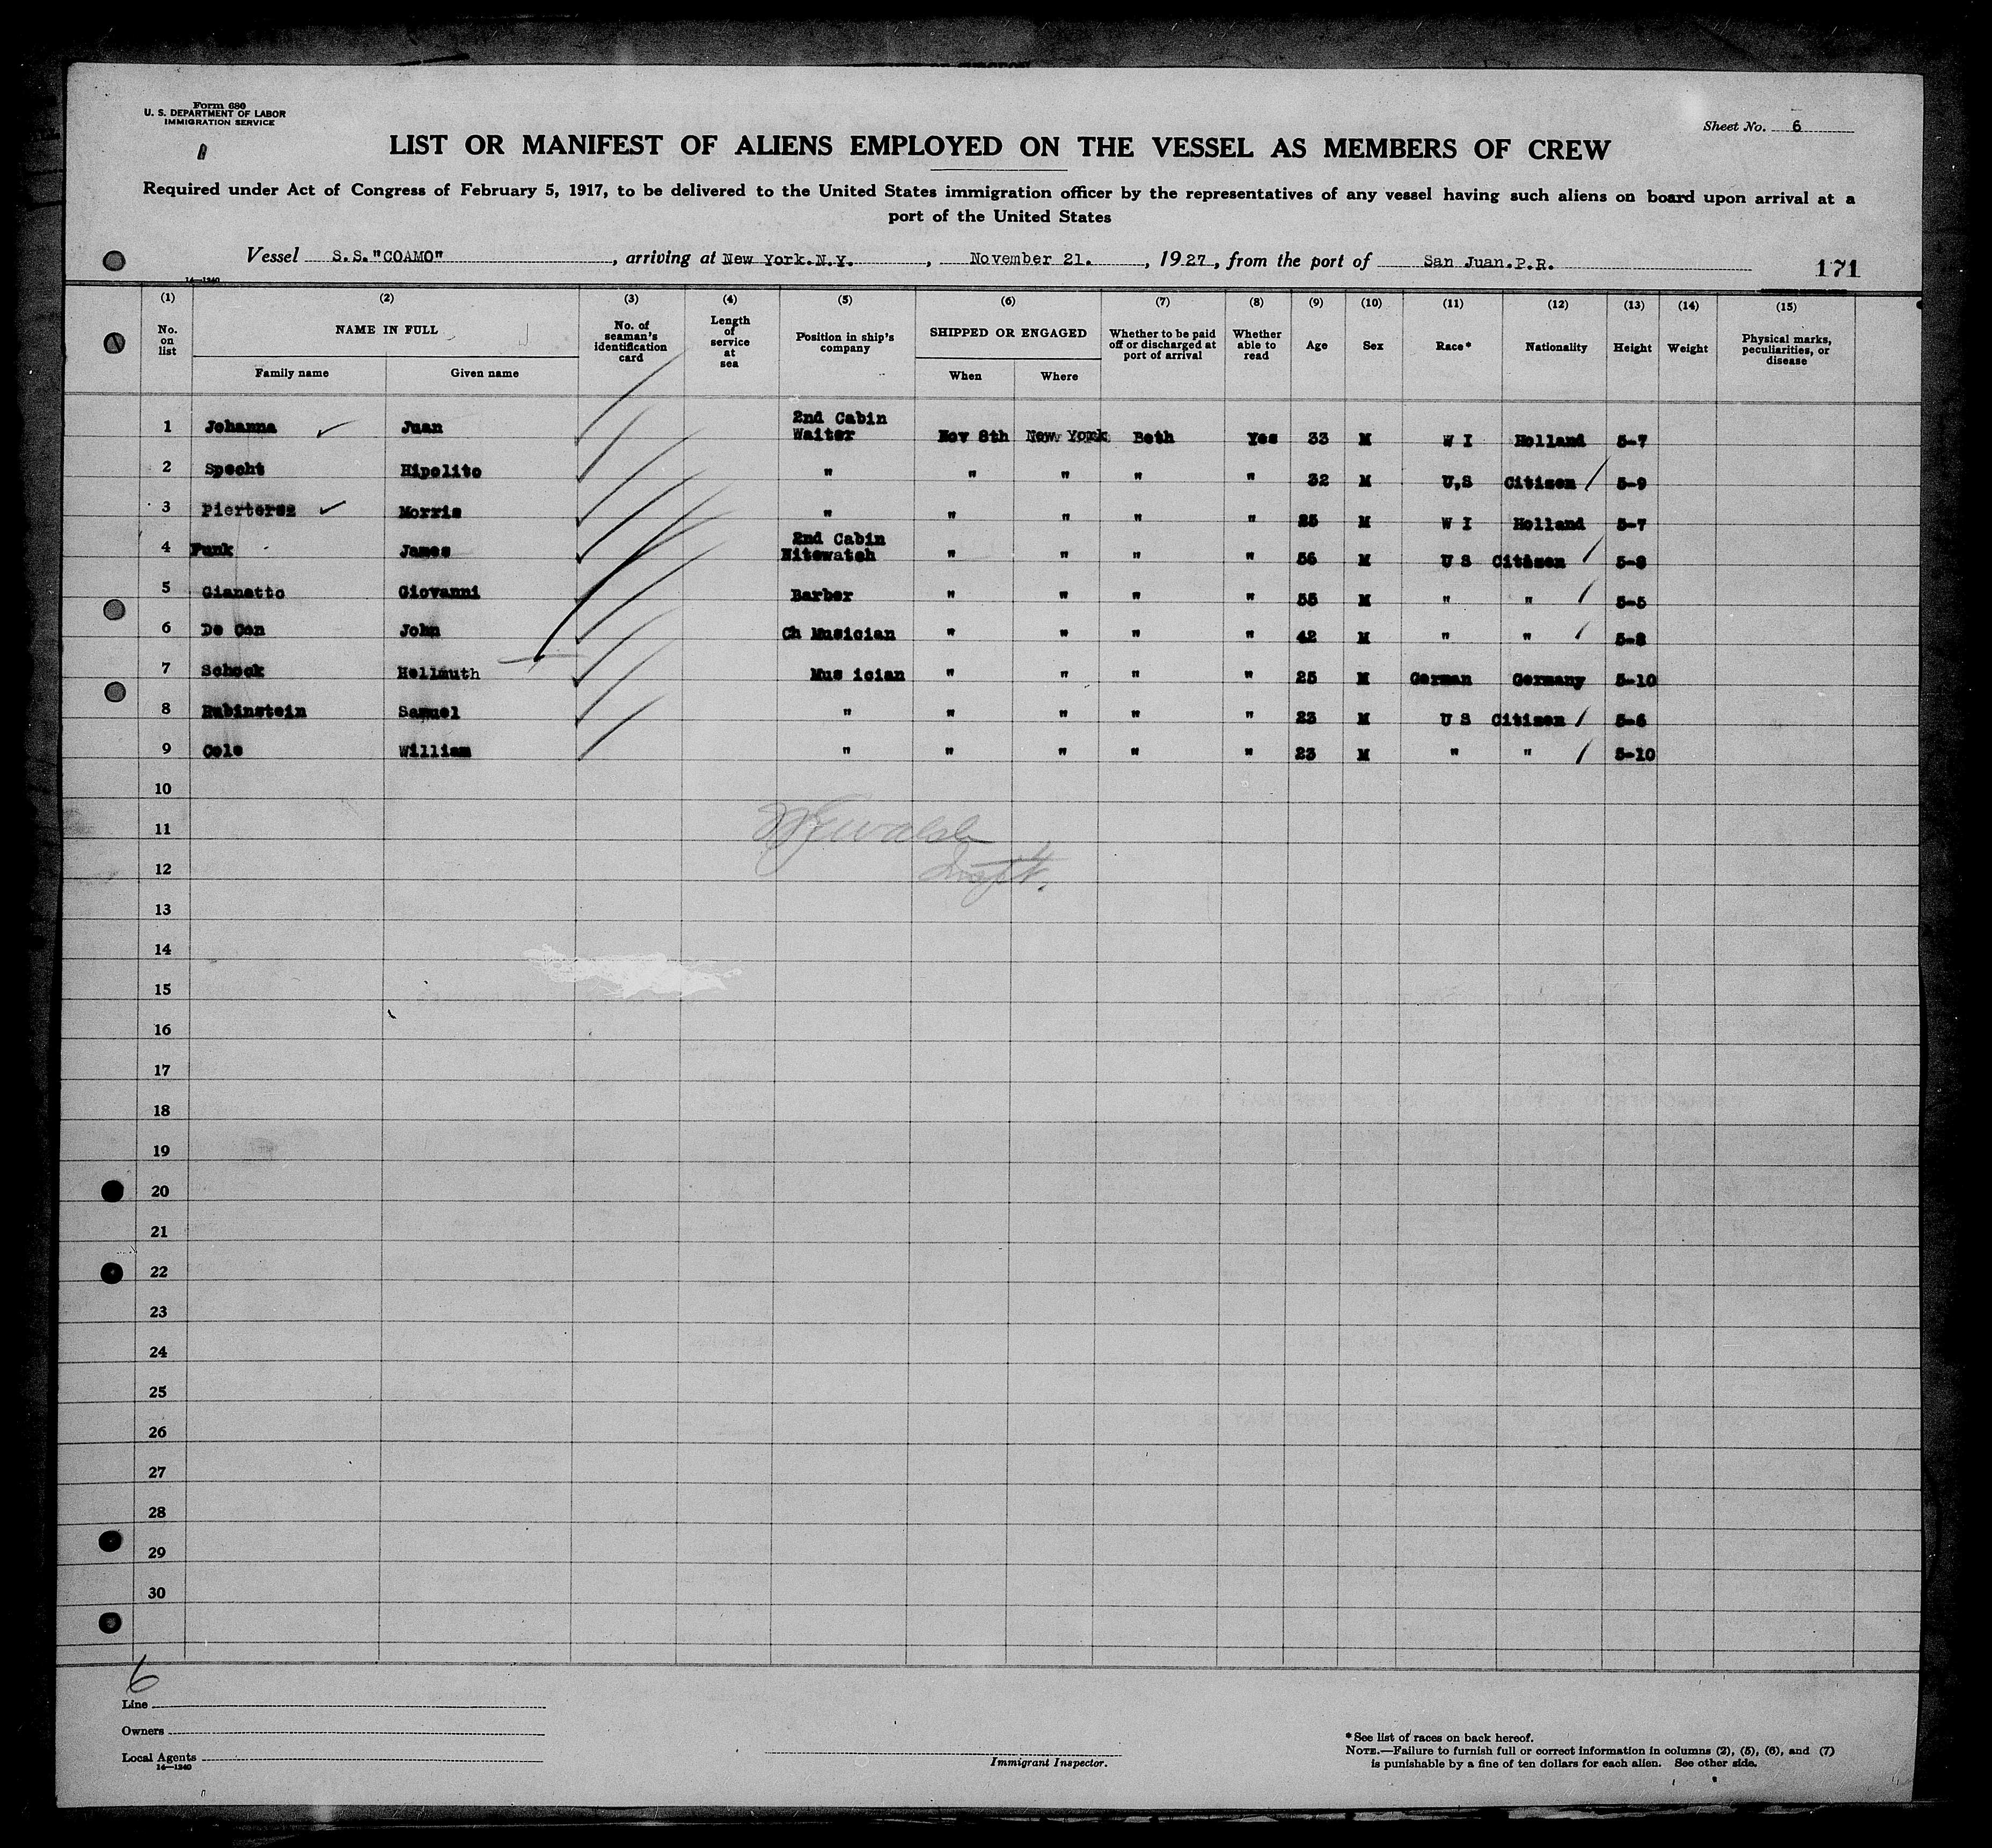 Form 680
U. S. DEPARTMENT OF LABOR
IMMIGRATION SERVICE
Sheet No. 6
LIST OR MANIFEST OF ALIENS EMPLOYED ON THE VESSEL AS MEMBERS OF CREW
Required under Act of Congress of February 5, 1917, to be delivered to the United States immigration officer by the representatives of any vessel having such aliens on board upon arrival at a
port of the United States
Vessel S.S."COAMO", arriving at New York.N.Y., November 21., 1927, from the port of San Juan.P.R.
171
14—1240
(1) (2) (3) (4) (5) (6) (7) (8) (9) (10) (11) (12) (13) (14) (15)
No. on list
NAME IN FULL
Family name Given name
No. of seaman's identification card
Length of service at sea
Position in ship's company
SHIPPED OR ENGAGED
When Where
Whether to be paid off or discharged at port of arrival
Whether able to read
Age Sex Race* Nationality Height Weight
Physical marks, peculiarities, or disease
1 Johanna Juan 2nd Cabin Waiter Nov 8th New York Both Yes 33 M W I Holland 5-7
2 Specht Hipolito " " " " " 32 M U,S Citizen 5-9
3 Piertersz Morris " " " " " 25 M W I Holland 5-7
4 Funk James 2nd Cabin Nitewatch " " " " 56 M U S Citizen 5-8
5 Gianatto Giovanni Barber " " " " 55 M " " 5-5
6 De Con John Ch Musician " " " " 42 M " " 5-8
7 Schock Hellmuth Mus ician " " " " 25 M German Germany 5-10
8 Rubinstein Samuel " " " " " 23 M U S Citizen 5-6
9 Cole William " " " " " 23 M " " 5-10
10
11
12
13
14
15
16
17
18
19
20
21
22
23
24
25
26
27
28
29
30
Walsh
Inspt.
6
Line
Owners
Local Agents
14—1240
Immigrant Inspector.
*See list of races on back hereof.
NOTE.—Failure to furnish full or correct information in columns (2), (5), (6), and (7)
is punishable by a fine of ten dollars for each alien. See other side.